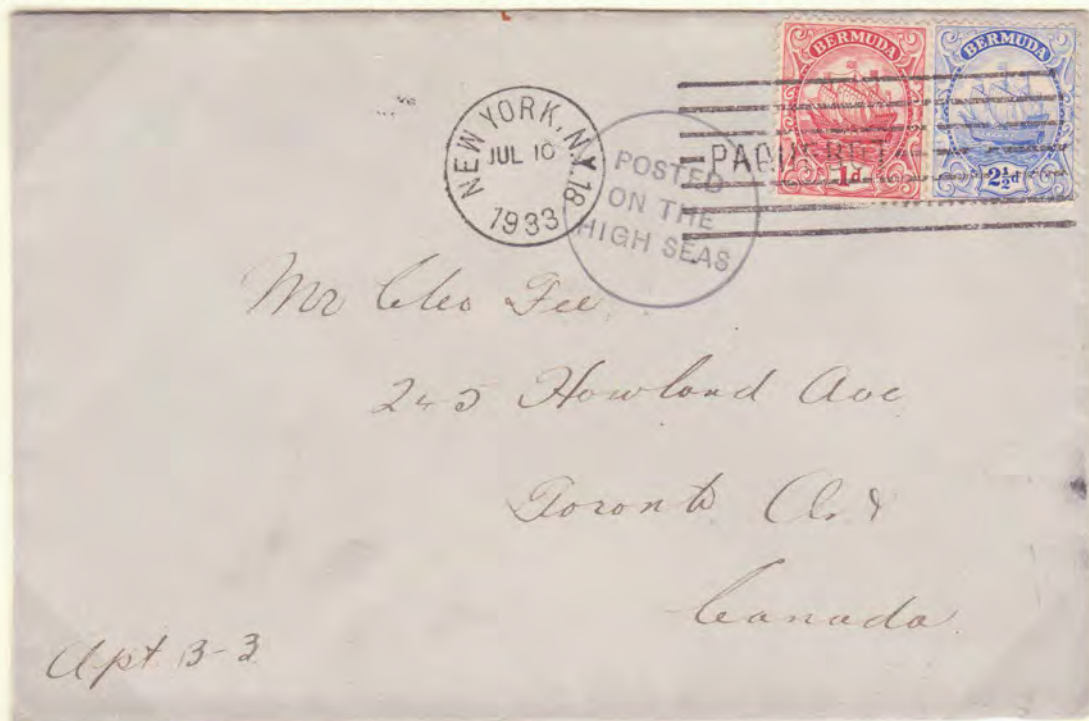 BERMUDA
1d.
BERMUDA
2½d
NEW YORK, N.Y. 18
JUL 10
1933
PAQUEBOT
POSTED
ON THE
HIGH SEAS
Mr Cleo Fee
245 Howland Ave
Toronto
Canada
Apt B-3